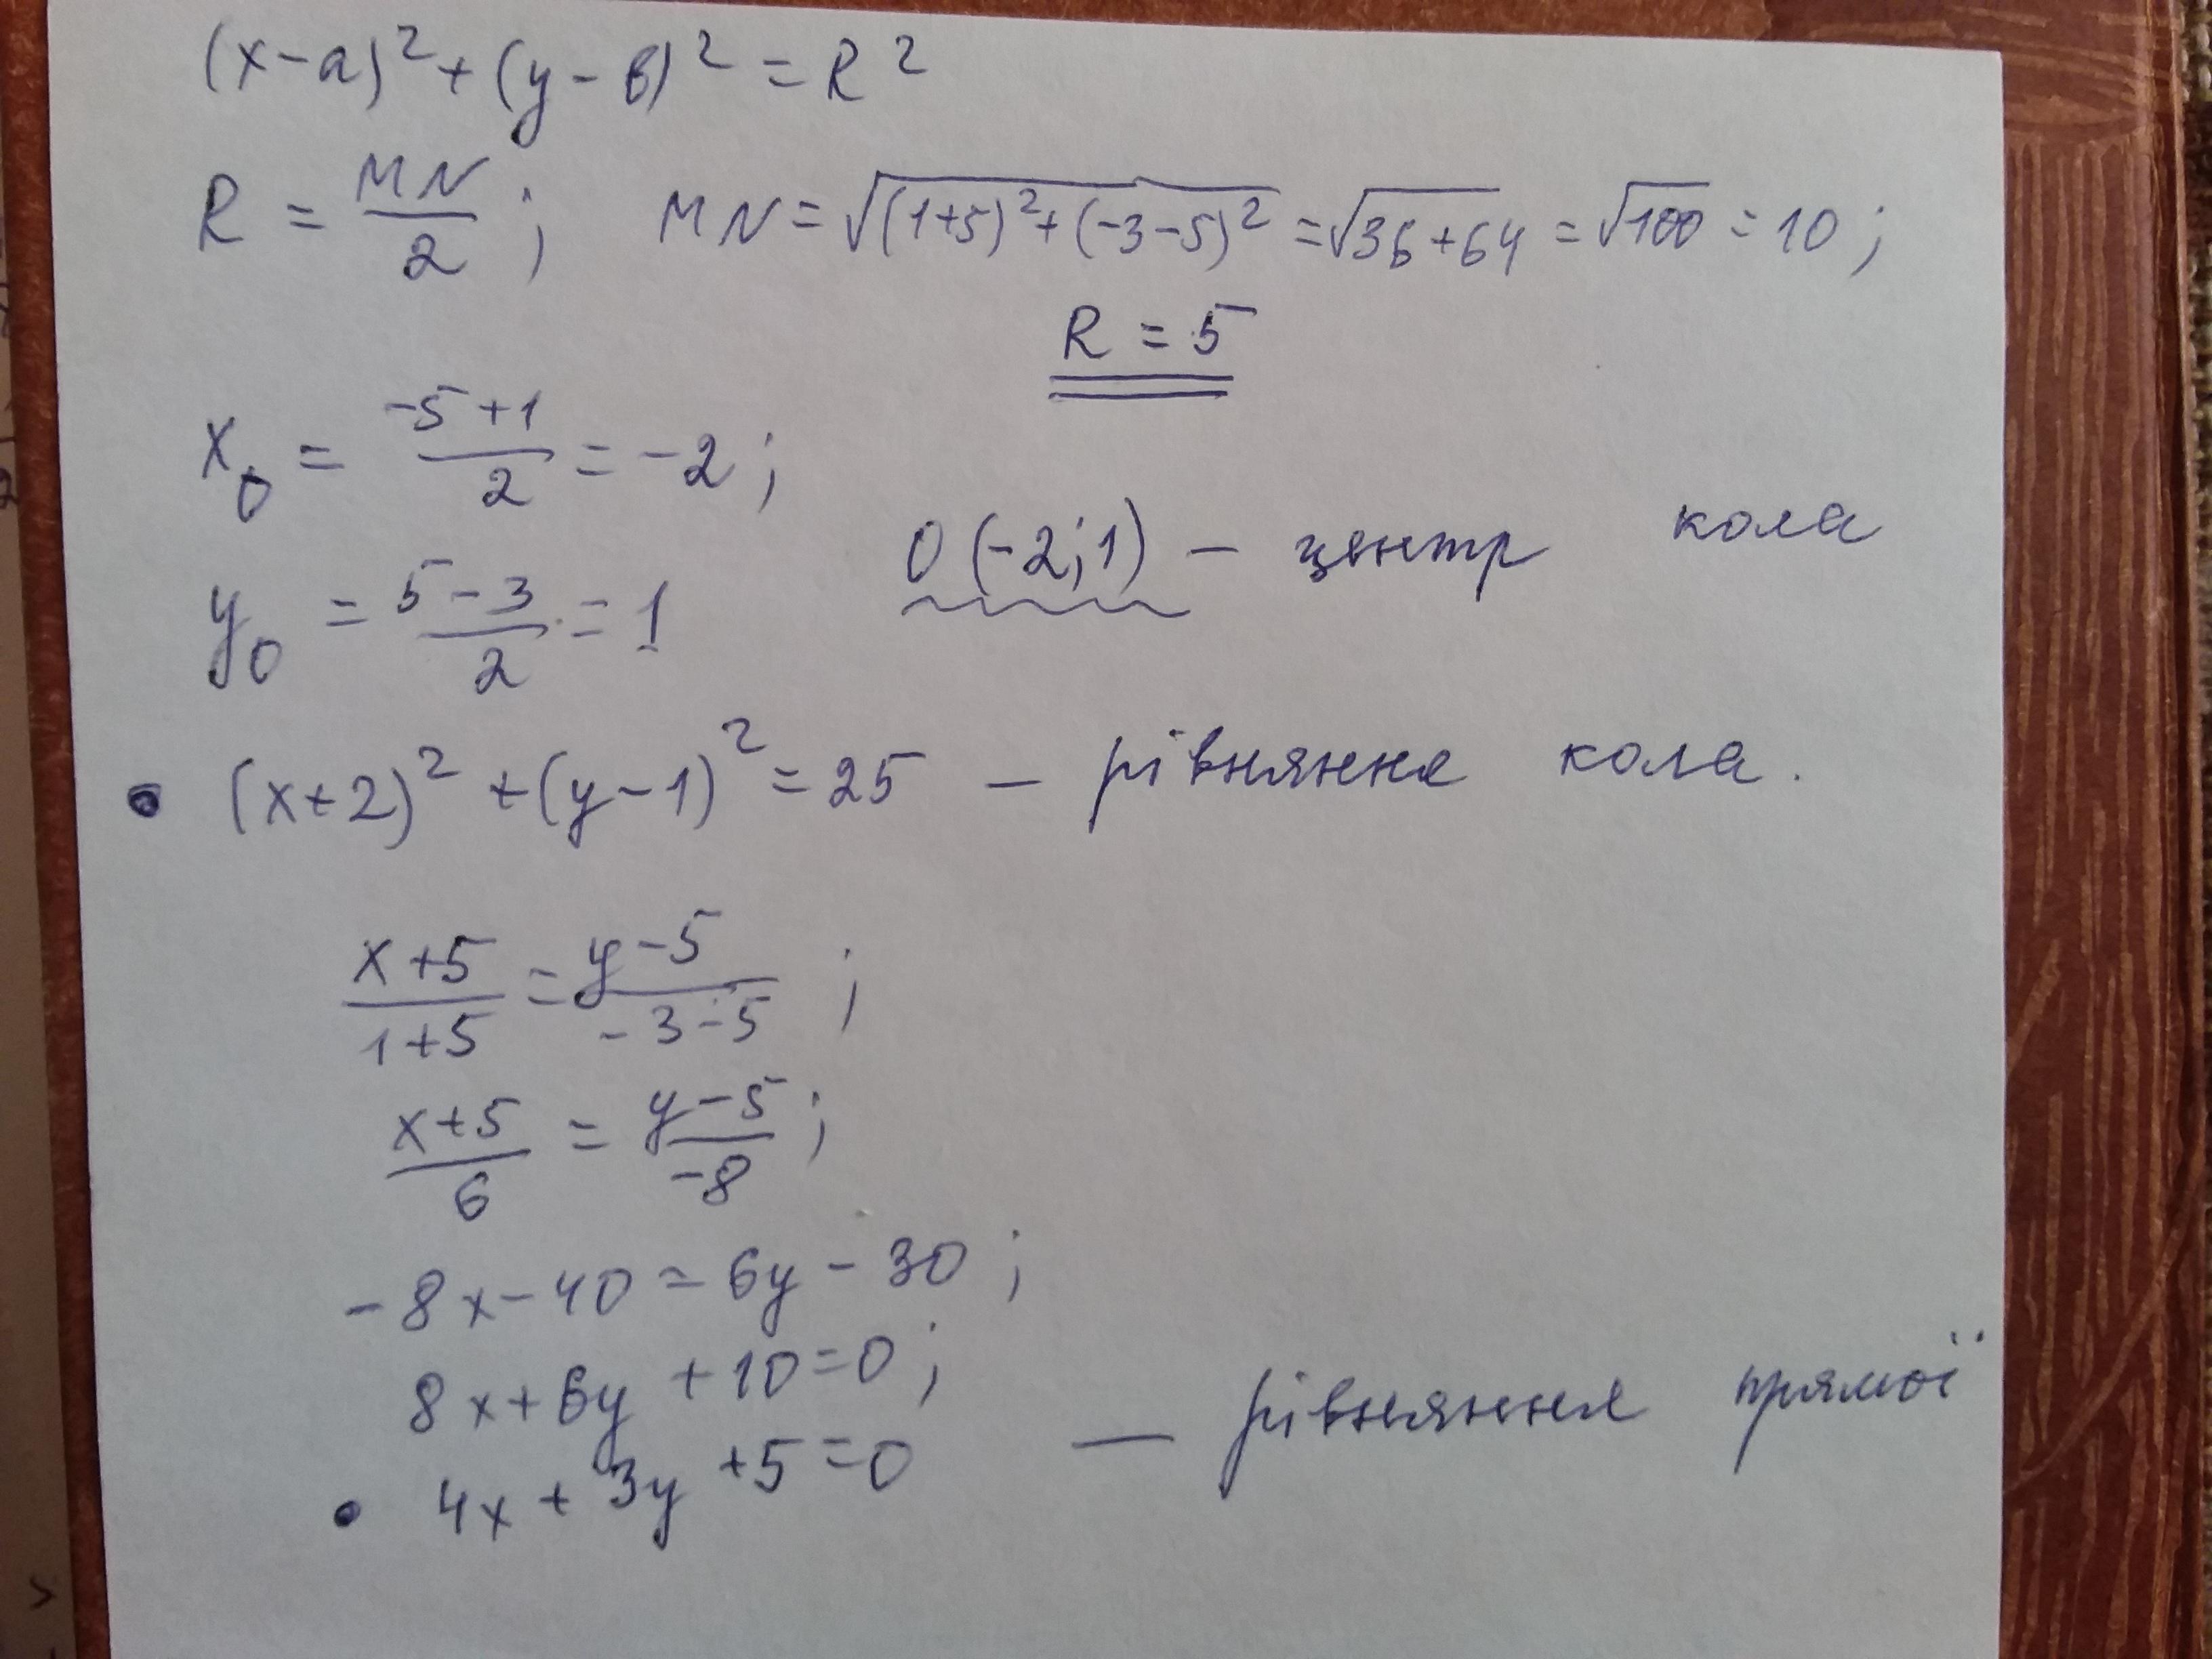 (x-a)² + (y-в)² = R²
R = MN/2 ; MN = √((1+5)² + (-3-5)²) = √36+64 = √100 = 10 ;
R = 5
x₀ = (-5+1)/2 = -2 ;
O (-2; 1) — центр кола
y₀ = (5-3)/2 = 1
• (x+2)² + (y-1)² = 25 — рівняння кола.
(x+5)/(1+5) = (y-5)/(-3-5) ;
(x+5)/6 = (y-5)/-8 ;
-8x-40 = 6y-30 ;
8x+6y+10=0 ;
• 4x+3y+5=0 — рівняння прямої